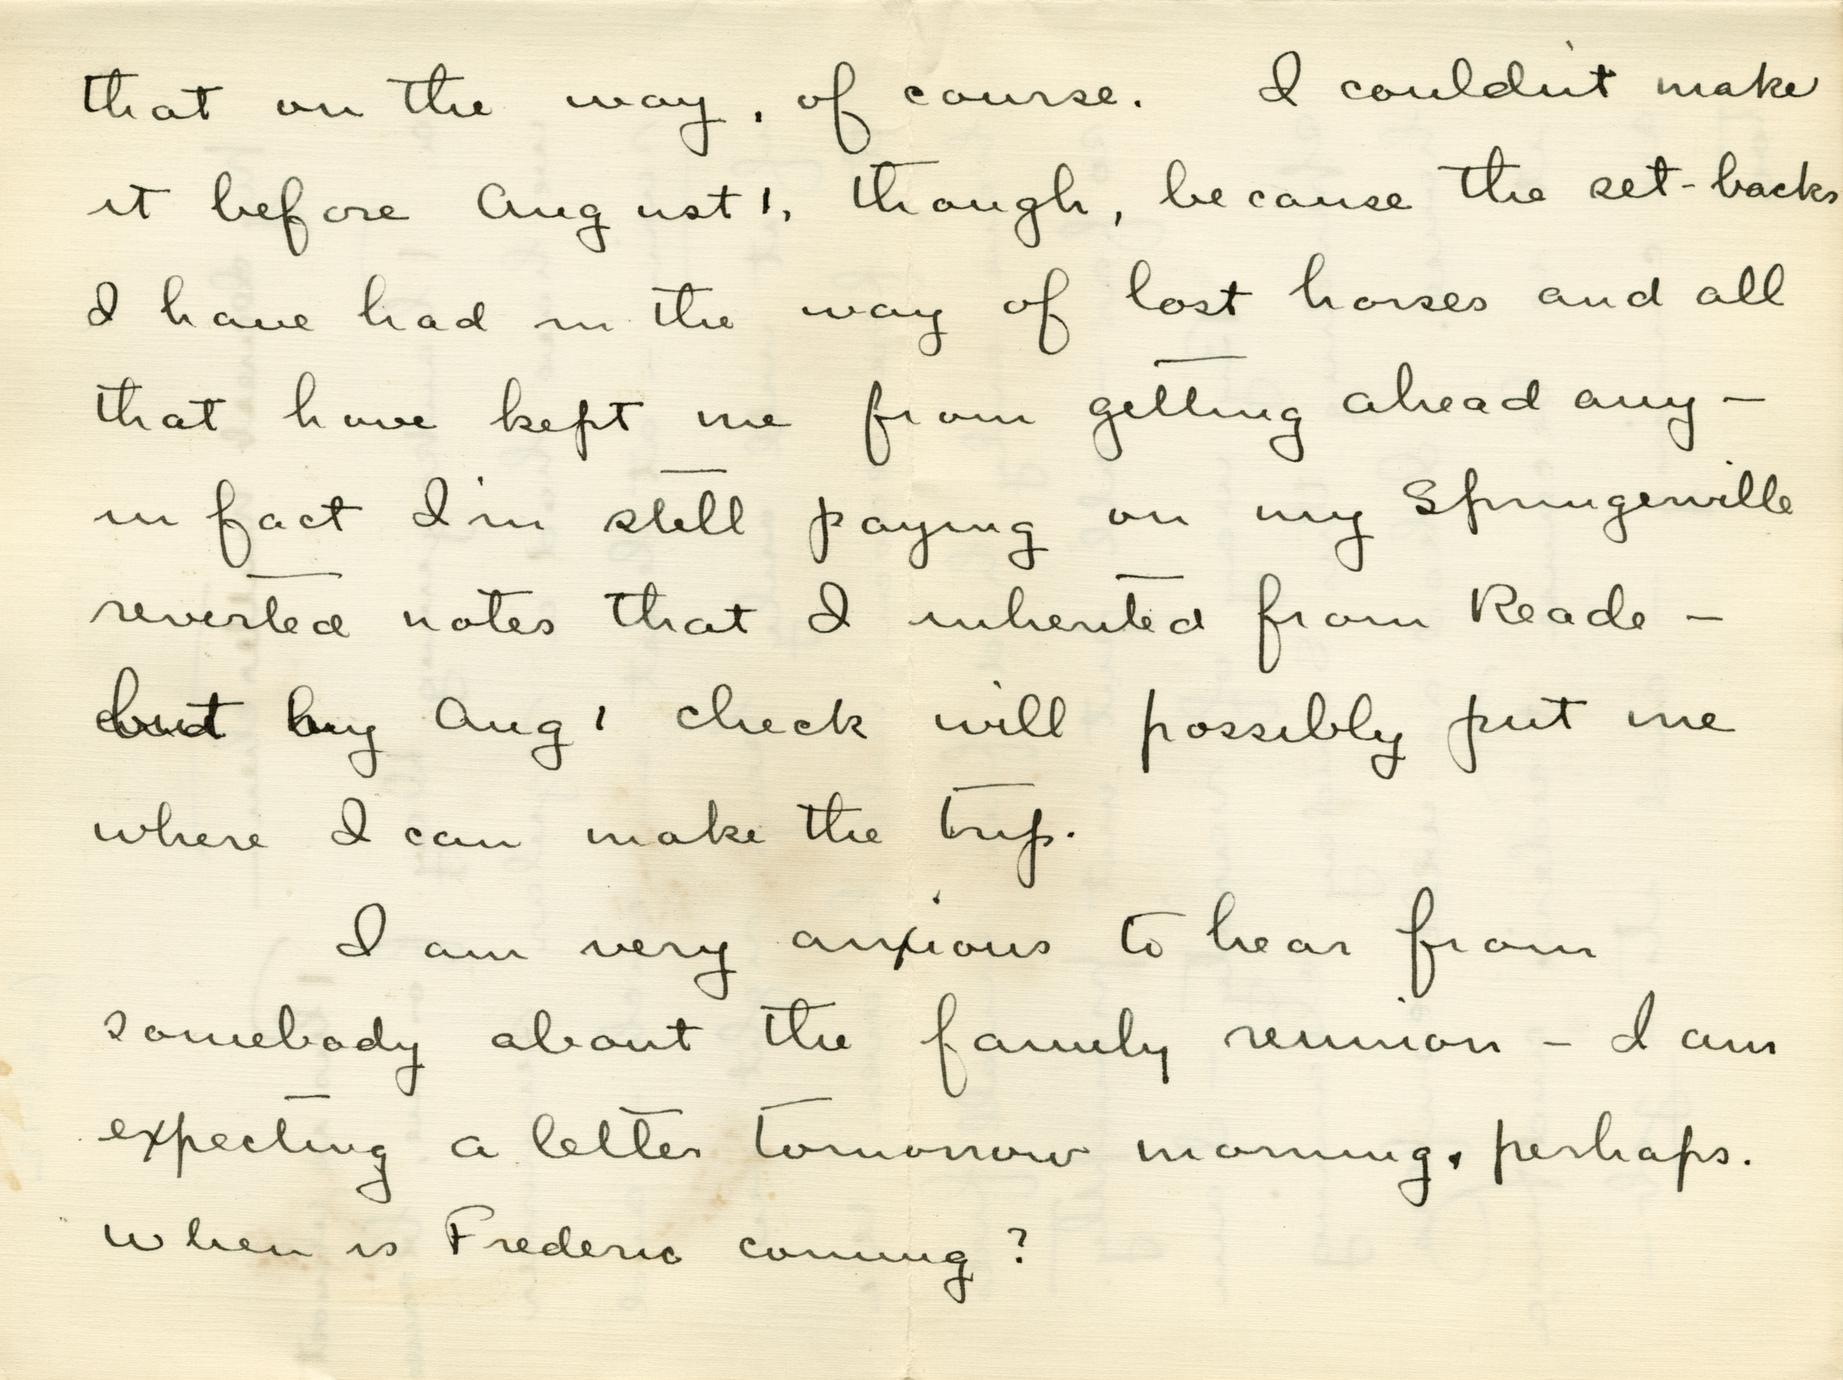 that on the way, of course. I couldn't make
it before August 1, though, because the set-backs
I have had in the way of lost horses and all
that have kept me from getting ahead any -
in fact I'm still paying on my Springerville
reverted notes that I inherited from Reade -
but my Aug 1 check will possibly put me
where I can make the trip.
I am very anxious to hear from
somebody about the family reunion - I am
expecting a letter tomorrow morning, perhaps.
When is Frederic coming?